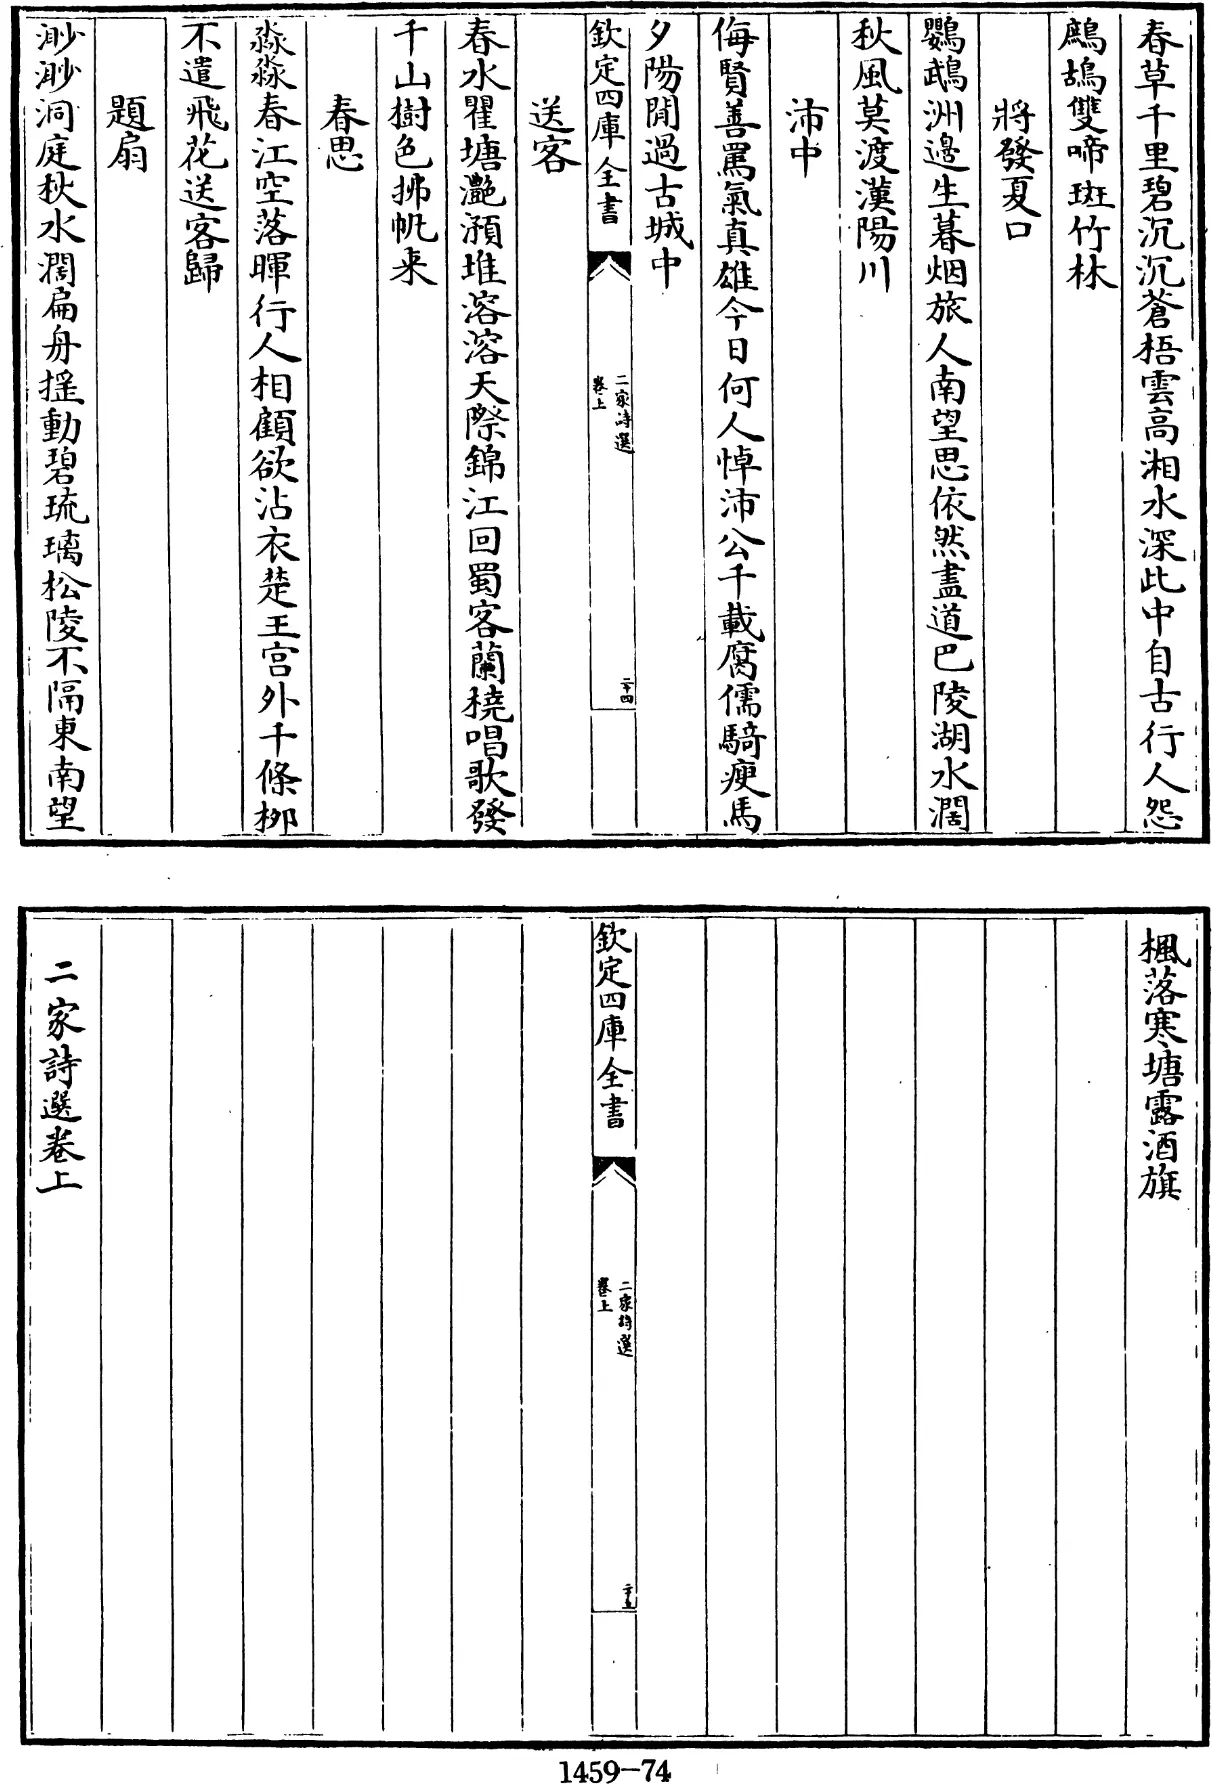 春草千里碧沉沉蒼梧雲高湘水深此中自古行人怨
鷓鴣雙啼斑竹林
將發夏口
鸚鵡洲邊生暮烟旅人南望思依然盡道巴陵湖水濶
秋風莫渡漢陽川
沛中
侮賢善罵氣真雄今日何人悼沛公千載腐儒騎瘦馬
夕陽閒過古城中
欽定四庫全書
二家詩選
卷上
二十四
送客
春水瞿塘灧澦堆溶溶天際錦江回蜀客蘭橈唱歌發
千山樹色拂帆来
春思
淼淼春江空落暉行人相顧欲沾衣楚王宫外千條栁
不遣飛花送客歸
題扇
渺渺洞庭秋水濶扁舟揺動碧琉璃松陵不隔東南望
楓落寒塘露酒旗
欽定四庫全書
二家詩選
卷上
二十五
二家詩選卷上
1459-74